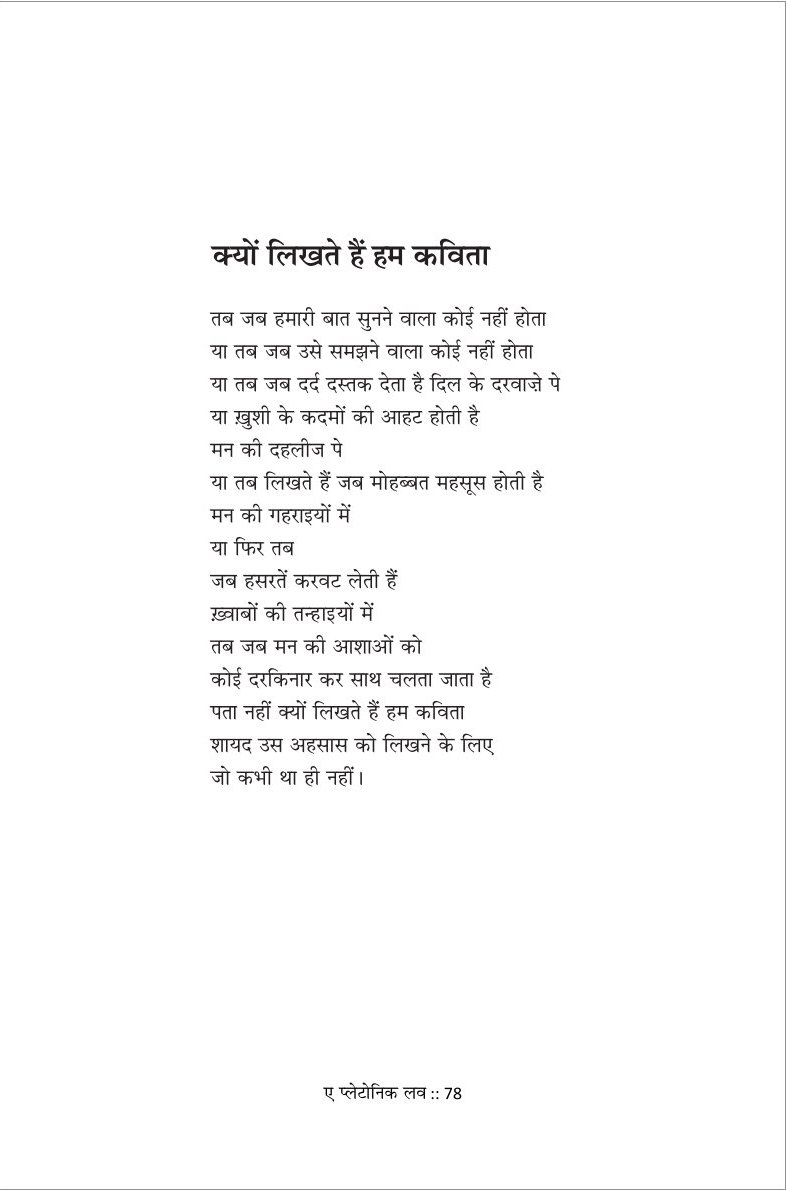 क्यों लिखते हैं हम कविता
तब जब हमारी बात सुनने वाला कोई नहीं होता
या तब जब उसे समझने वाला कोई नहीं होता
या तब जब दर्द दस्तक देता है दिल के दरवाज़े पे
या ख़ुशी के कदमों की आहट होती है
मन की दहलीज पे
या तब लिखते हैं जब मोहब्बत महसूस होती है
मन की गहराइयों में
या फिर तब
जब हसरतें करवट लेती हैं
ख़्वाबों की तन्हाइयों में
तब जब मन की आशाओं को
कोई दरकिनार कर साथ चलता जाता है
पता नहीं क्यों लिखते हैं हम कविता
शायद उस अहसास को लिखने के लिए
जो कभी था ही नहीं।
ए प्लेटोनिक लव :: 78